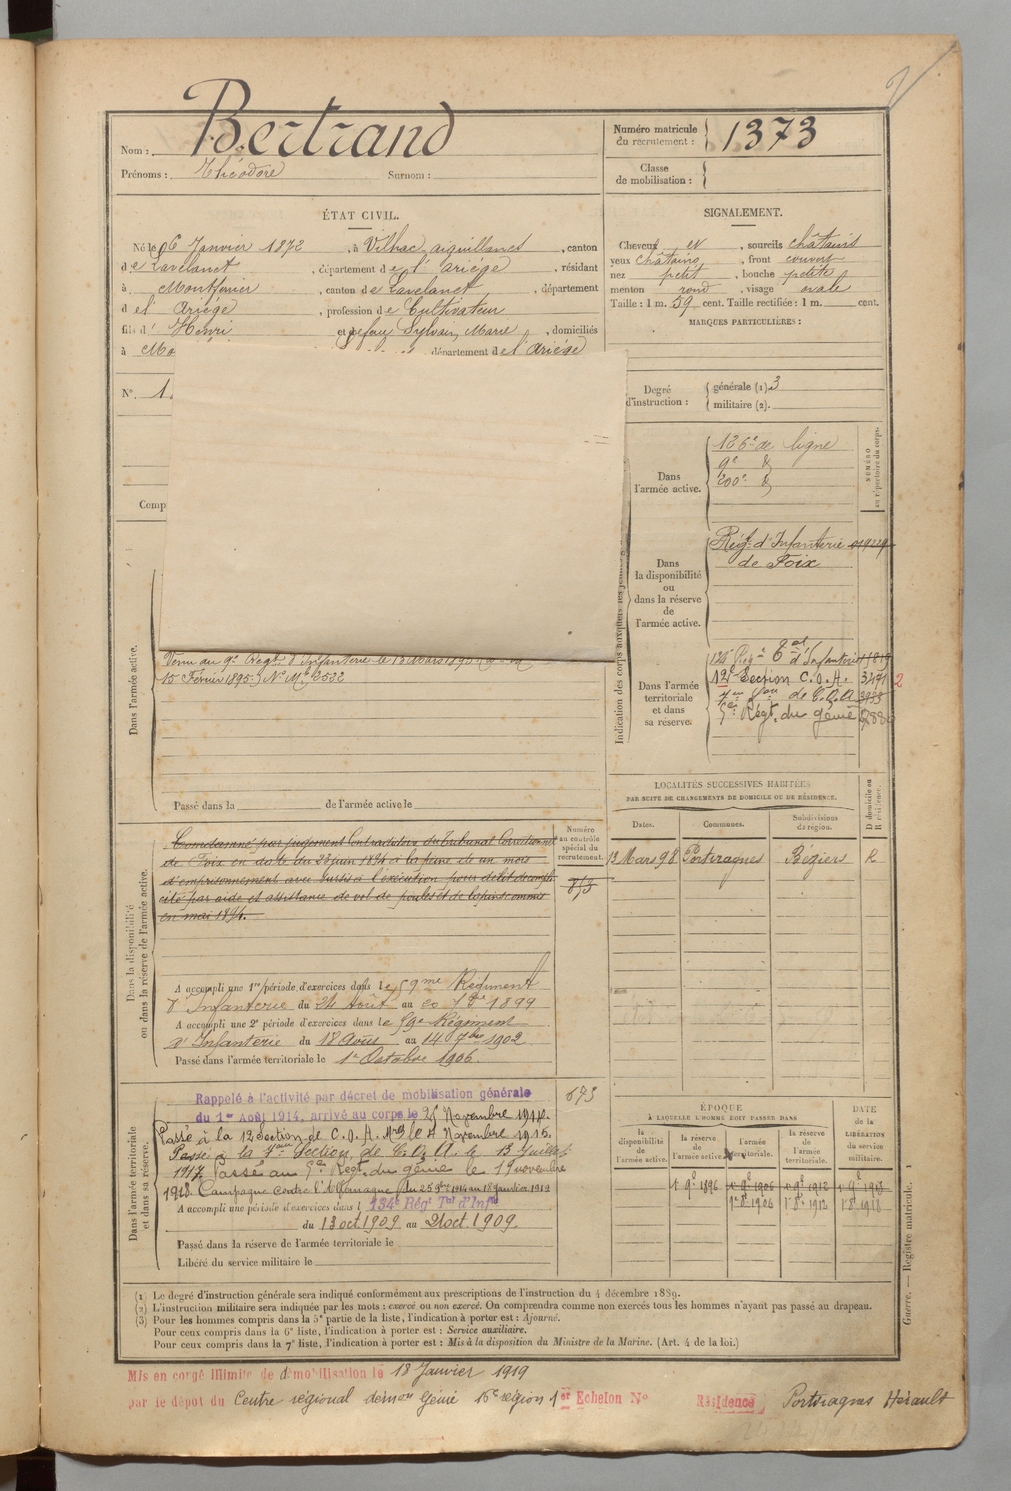 Nom : Bertrand
Prénoms : Théodore Surnom :
Numéro matricule du recrutement : 1373
Classe de mobilisation :
ÉTAT CIVIL.
Né le 6 Janvier 1872, à Vilhac aiguillanes, canton
de Lavelanet, département de l'ariége, résidant
à Montferrier, canton de Lavelanet, département
de l'Ariége, profession de Cultivateur
fils d' Henri et de feu Sylvain, Marie, domiciliés
à Mo département de l'ariége
SIGNALEMENT.
Cheveux et, sourcils châtains
yeux châtains, front couvert
nez petit, bouche petite
menton rond, visage ovale
Taille : 1 m. 59 cent. Taille rectifiée : 1 m. cent.
MARQUES PARTICULIÈRES :
N° 1
Comp
Degré d'instruction : générale (1). 3
militaire (2).
Indication des corps auxquels les
NUMÉRO au répertoire du corps.
Dans l'armée active.
126e de ligne
9e &
100e &
Dans la disponibilité ou dans la réserve de l'armée active.
Régt d'Infanterie
de Foix
Dans l'armée territoriale et dans sa réserve.
d'Infanterie
12e Section C.O.A. 3471 2
de C.O.A.
Régt. du génie
Dans l'armée active.
Venu au 9e Régt d'Infanterie le 13 Mars
15 Février 1895 N° Mle 2532
Passé dans la de l'armée active le
LOCALITÉS SUCCESSIVES HABITÉES
PAR SUITE DE CHANGEMENTS DE DOMICILE OU DE RÉSIDENCE.
D domicile ou R résidence.
Dates. Communes. Subdivisions de région.
13 Mars 98 Portiragnes Béziers R
Dans la disponibilité ou dans la réserve de l'armée active.
Numéro au contrôle spécial du recrutement.
813
Condamné par jugement Contradictoire du Tribunal Correctionnel
de Foix en date du 23 juin 1894 à la peine de un mois
d'emprisonnement avec sursis à l'exécution pour délit de compli-
cité par aide et assistance de vol de poules et de lapins commis
en mai 1894.
A accompli une 1re période d'exercices dans le 59me Régiment
d'Infanterie du 24 Août au 20 7bre 1899
A accompli une 2e période d'exercices dans le 59e Régiment
d'Infanterie du 18 Août au 14 7bre 1902
Passé dans l'armée territoriale le 1er Octobre 1906.
Dans l'armée territoriale et dans sa réserve.
673
Rappelé à l'activité par décret de mobilisation générale
du 1er Août 1914, arrivé au corps le 25 Novembre 1914.
Passé à la 12 Section de C.O.A. Mres le 4 Novembre 1915.
Passé à la Section de C.O.A. le 13 Juillet
1917. Passé au Régt. du génie le 15 novembre
1918. Campagne contre l'Allemagne du 25 9bre 1914 au 18 janvier 1919
A accompli une période d'exercices dans l 134e Régt Tal d'Inftie
du 13 oct 1909 au 21 oct 1909.
Passé dans la réserve de l'armée territoriale le
Libéré du service militaire le
ÉPOQUE
À LAQUELLE L'HOMME DOIT PASSER DANS
DATE de la LIBÉRATION du service militaire.
la disponibilité de l'armée active.
la réserve de l'armée active.
l'armée territoriale.
la réserve de l'armée territoriale.
1er 9e 1896 1er 9e 1906 1er 9e 1912 1er 9e 1918
1er 8e 1906 1er 8e 1912 1er 8e 1918
(1) Le degré d'instruction générale sera indiqué conformément aux prescriptions de l'instruction du 4 décembre 1889.
(2) L'instruction militaire sera indiquée par les mots : exercé ou non exercé. On comprendra comme non exercés tous les hommes n'ayant pas passé au drapeau.
(3) Pour les hommes compris dans la 5e partie de la liste, l'indication à porter est : Ajourné.
Pour ceux compris dans la 6e liste, l'indication à porter est : Service auxiliaire.
Pour ceux compris dans la 7e liste, l'indication à porter est : Mis à la disposition du Ministre de la Marine. (Art. 4 de la loi.)
Guerre. — Registre matricule. 1
Mis en congé illimité de démobilisation le 18 Janvier 1919
par le dépôt du Centre régional démon Génie 16e région 1er Echelon N° Résidence Portiragnes Hérault